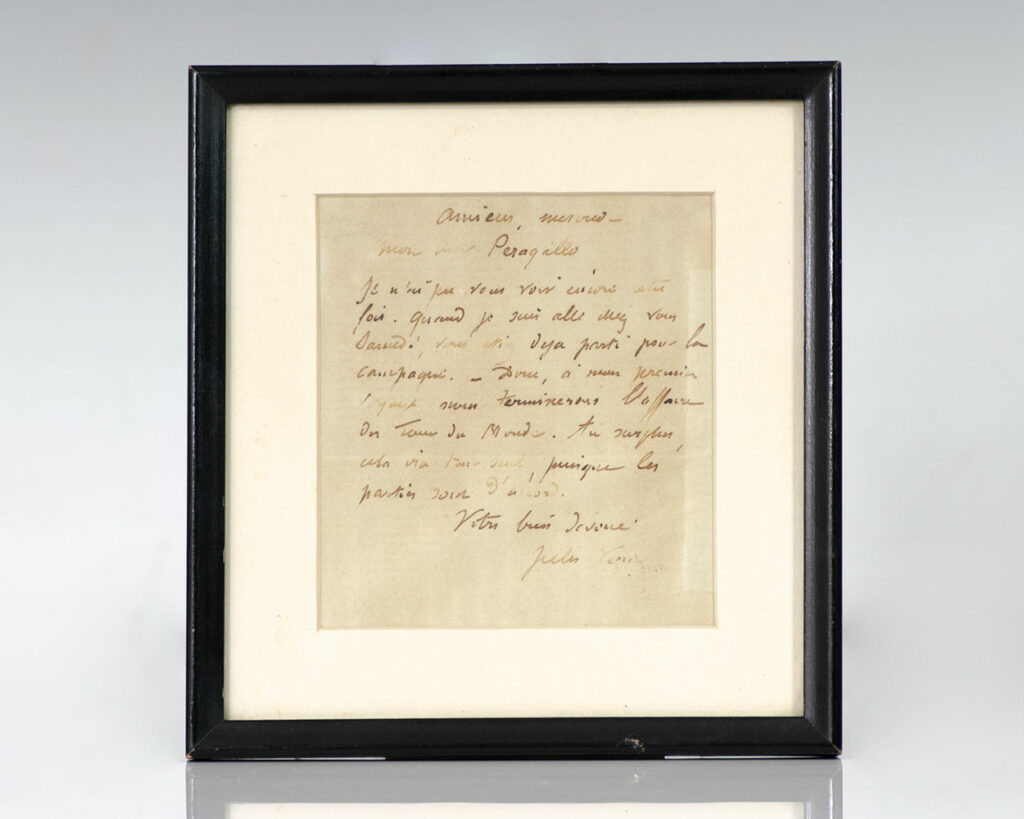 Amiens, mercredi
Mon cher Peragallo
Je n'ai pu vous voir encore cette
fois. Quand je suis allé chez vous
Samedi, vous étiez déja parti pour la
campagne. – Donc, à mon premier
voyage nous terminerons l'affaire
du Tour du Monde. Au surplus,
cela ira tout seul, puisque les
parties sont d'accord.
Votre bien dévoué
Jules Verne